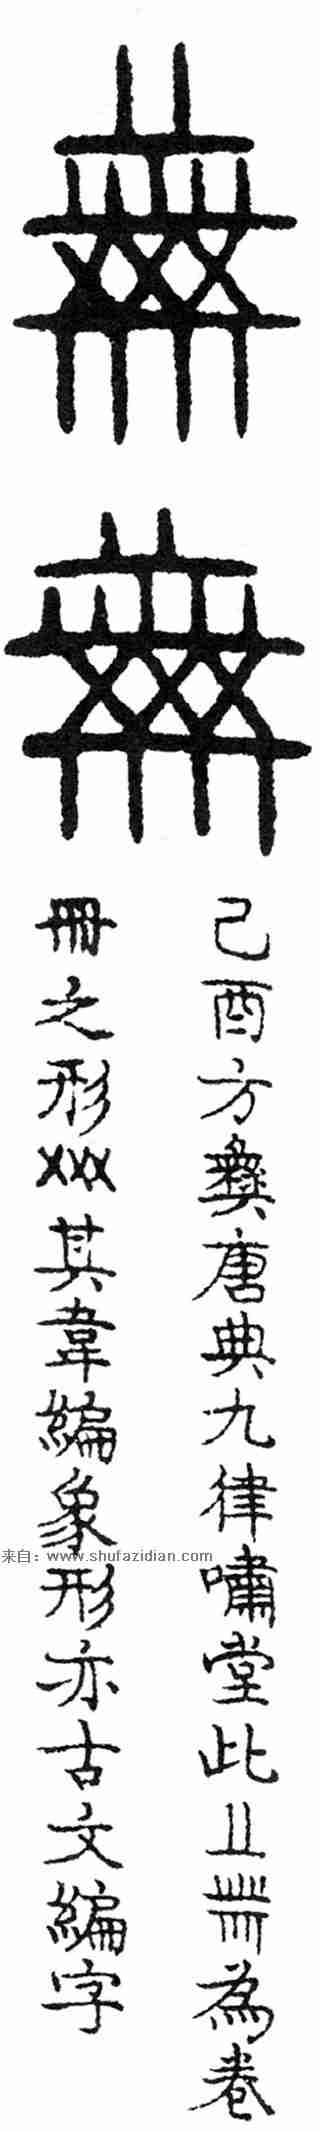 己酉方彝唐典九律嘯堂此丄為卷
冊之形其韋編象形亦古文編字
来自：www.shufazidian.com